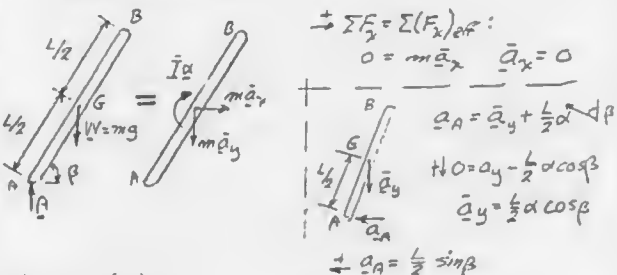 B
L/2
L/2
G
W=mg
β
A
A
=
B
Īα
mā_x
mā_y
A
+→ ΣF_x = Σ(F_x)_eff :
0 = mā_x ā_x = 0
B
G
L/2
ā_y
A
a_A
a_A = ā_y + L/2 α β
+↓ 0 = a_y - L/2 α cosβ
ā_y = L/2 α cosβ
+← a_A = L/2 sinβ